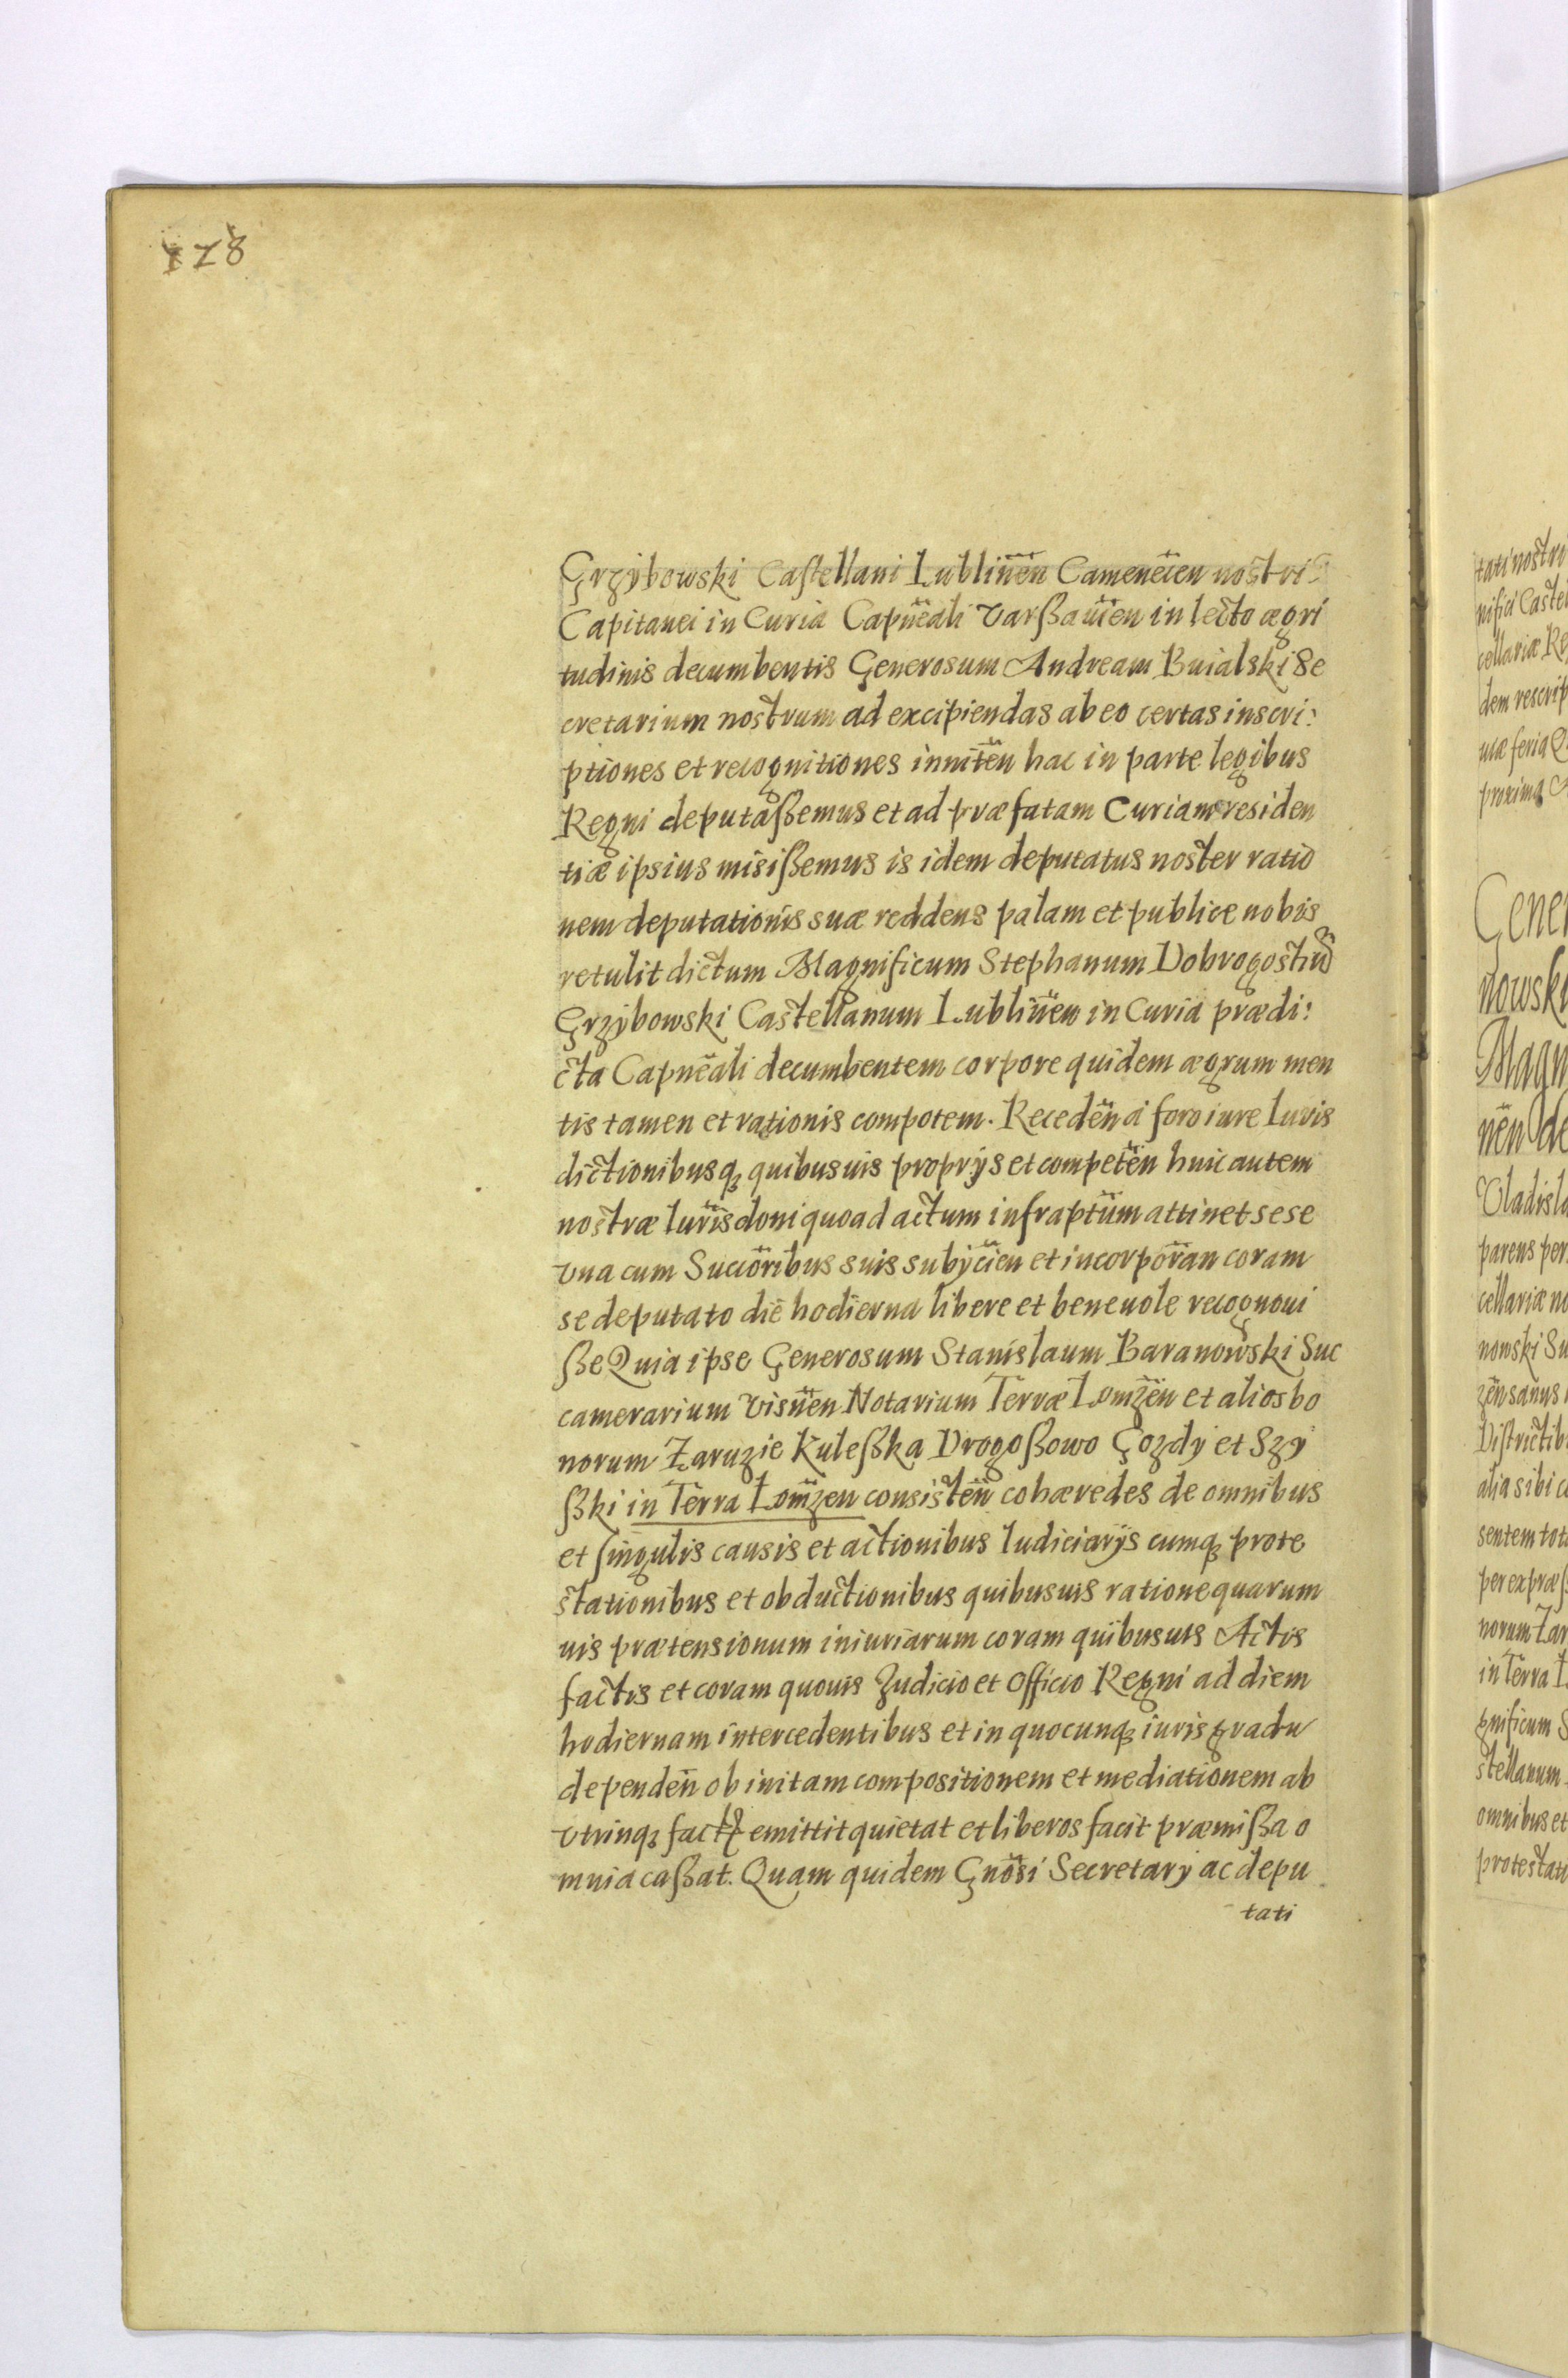 128
Grzybowski Castellani Lublineñ Cameneceñ nostri
Capitanei in Curia Capneali Varßauieñ in lecto ægri
tudinis decumbentis Generosum Andream Buialski Se
cretarium nostrum ad excipiendas ab eo certas inscri:
ptiones et recognitiones inniteñ hac in parte legibus
Regni deputaßemus et ad præfatam Curiam residen
tiæ ipsius misißemus is idem deputatus noster ratio
nem deputationis suæ reddens palam et publice nobis
retulit dictum Magnificum Stephanum Dobrogostiũ
Grzybowski Castellanum Lublineñ in Curia prædi:
cta Capneali decumbentem corpore quidem ægrum men
tis tamen et rationis compotem. Recedeñ à foro iure Iuris
dictionibusq3 quibusuis proprijs et competeñ huic autem
nostræ Iurisdoni quoad actum infraptum attinet sese
vna cum Succoribus suis subijcieñ et incorporañ coram
se deputato die hodierna libere et beneuole recognoui
ße Quia ipse Generosum Stanislaum Baranowski Suc
camerarium Visneñ Notarium Terræ Łomzeñ et alios bo
norum Zaruzie Kuleßka Drogoßowo Gozdy et Szy
ßki in Terra Łomzeñ consisteñ cohæredes de omnibus
et singulis causis et actionibus Iudiciarijs cumq3 prote
stationibus et obductionibus quibusuis ratione quarum
uis prætensionum iniuriarum coram quibusuis Actis
factis et coram quouis Iudicio et Officio Regni ad diem
hodiernam intercedentibus et in quocunq3 iuris gradu
dependeñ ob initam compositionem et mediationem ab
vtrinq3 emittit quietat et liberos facit præmißa o
mnia caßat. Quam quidem Gnosi Secretarij ac depu
tati
tati nostri
nifici Caste
cellariæ Re
dem rescrip
proxima
Gener
nowski
Magn
neñ de
Vladisla
parens per
cellariæ no
nowski Su
zeñ sanus
Districtib
alia sibi c
sentem tot
per expræs
norum Zar
in Terra Ł
gnificum S
stellanum
omnibus et
protestati